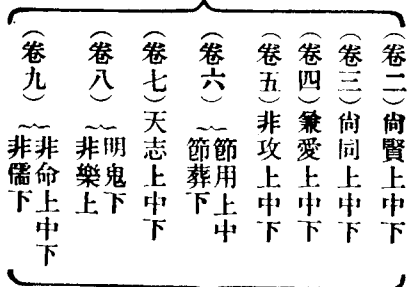 （卷二）尙賢上中下
（卷三）尙同上中下
（卷四）兼愛上中下
（卷五）非攻上中下
（卷六）節用上中
節葬下
（卷七）天志上中下
（卷八）明鬼下
非樂上
（卷九）非命上中下
非儒下